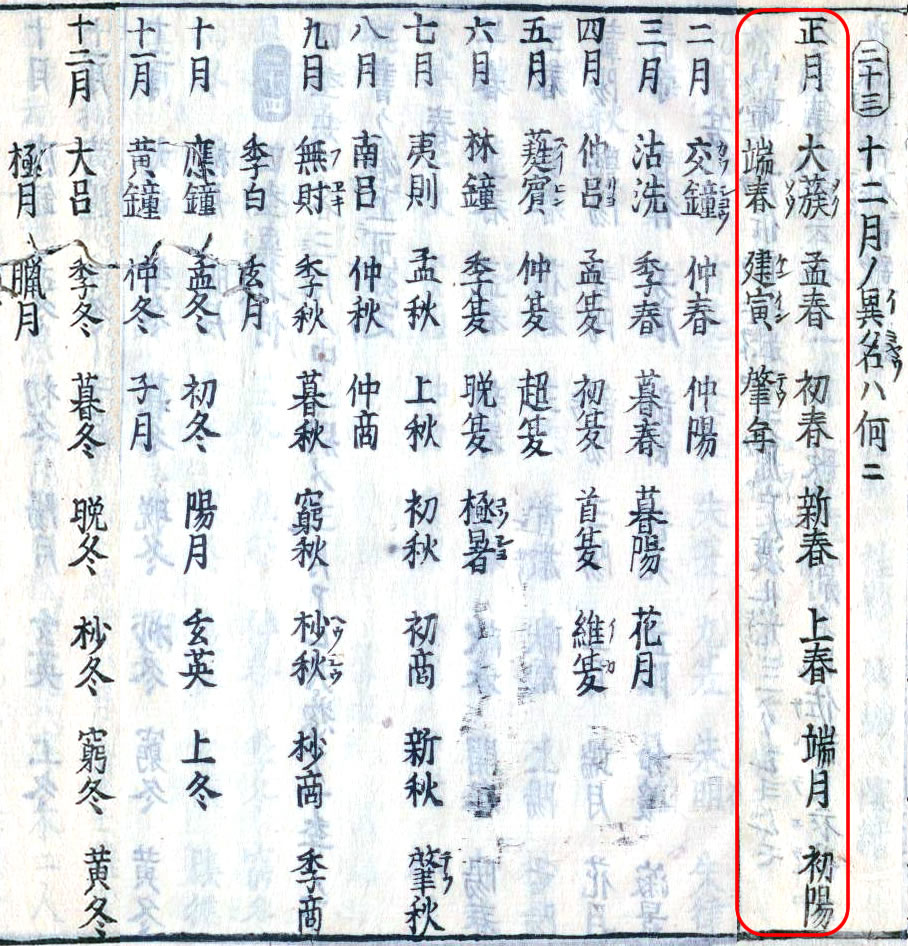 二十三 十二月ノ異名ハ何ニ イミヤウ
正月 大蔟 孟春 初春 新春 上春 端月 初陽
端春 建寅 肇年
二月 交鐘 仲春 仲陽
三月 沽洗 季春 暮春 暮陽 花月
四月 仲呂 孟夏 初夏 首夏 維夏
五月 蕤賓 仲夏 超夏
六月 林鐘 季夏 晩夏 極暑
七月 夷則 孟秋 上秋 初秋 初商 新秋 肇秋
八月 南呂 仲秋 仲商
九月 無財 季秋 暮秋 窮秋 杪秋 杪商 季商
季白 玄月
十月 應鐘 孟冬 初冬 陽月 玄英 上冬
十一月 黄鐘 仲冬 子月
十二月 大呂 季冬 暮冬 晩冬 杪冬 窮冬 黄冬
極月 臘月